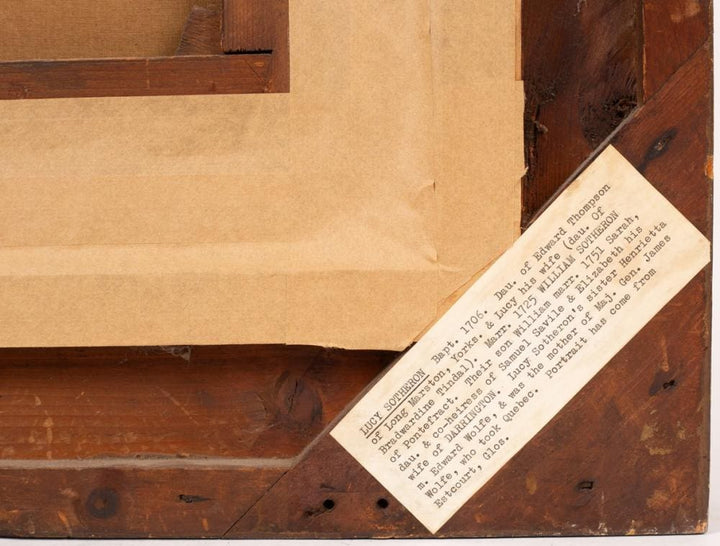 LUCY SOTHERON Bapt. 1706. Dau. of Edward Thompson
of Long Marston, Yorks. & Lucy his wife (dau. Of
Bradwardine Tindal). Marr. 1725 WILLIAM SOTHERON
of Pontefract. Their son William marr. 1751 Sarah,
dau. & co-heiress of Samuel Savile & Elizabeth his
wife of DARRINGTON. Lucy Sotheron's sister Henrietta
m. Edward Wolfe, & was the mother of Maj. Gen. James
Wolfe, who took Quebec. Portrait has come from
Estcourt, Glos.